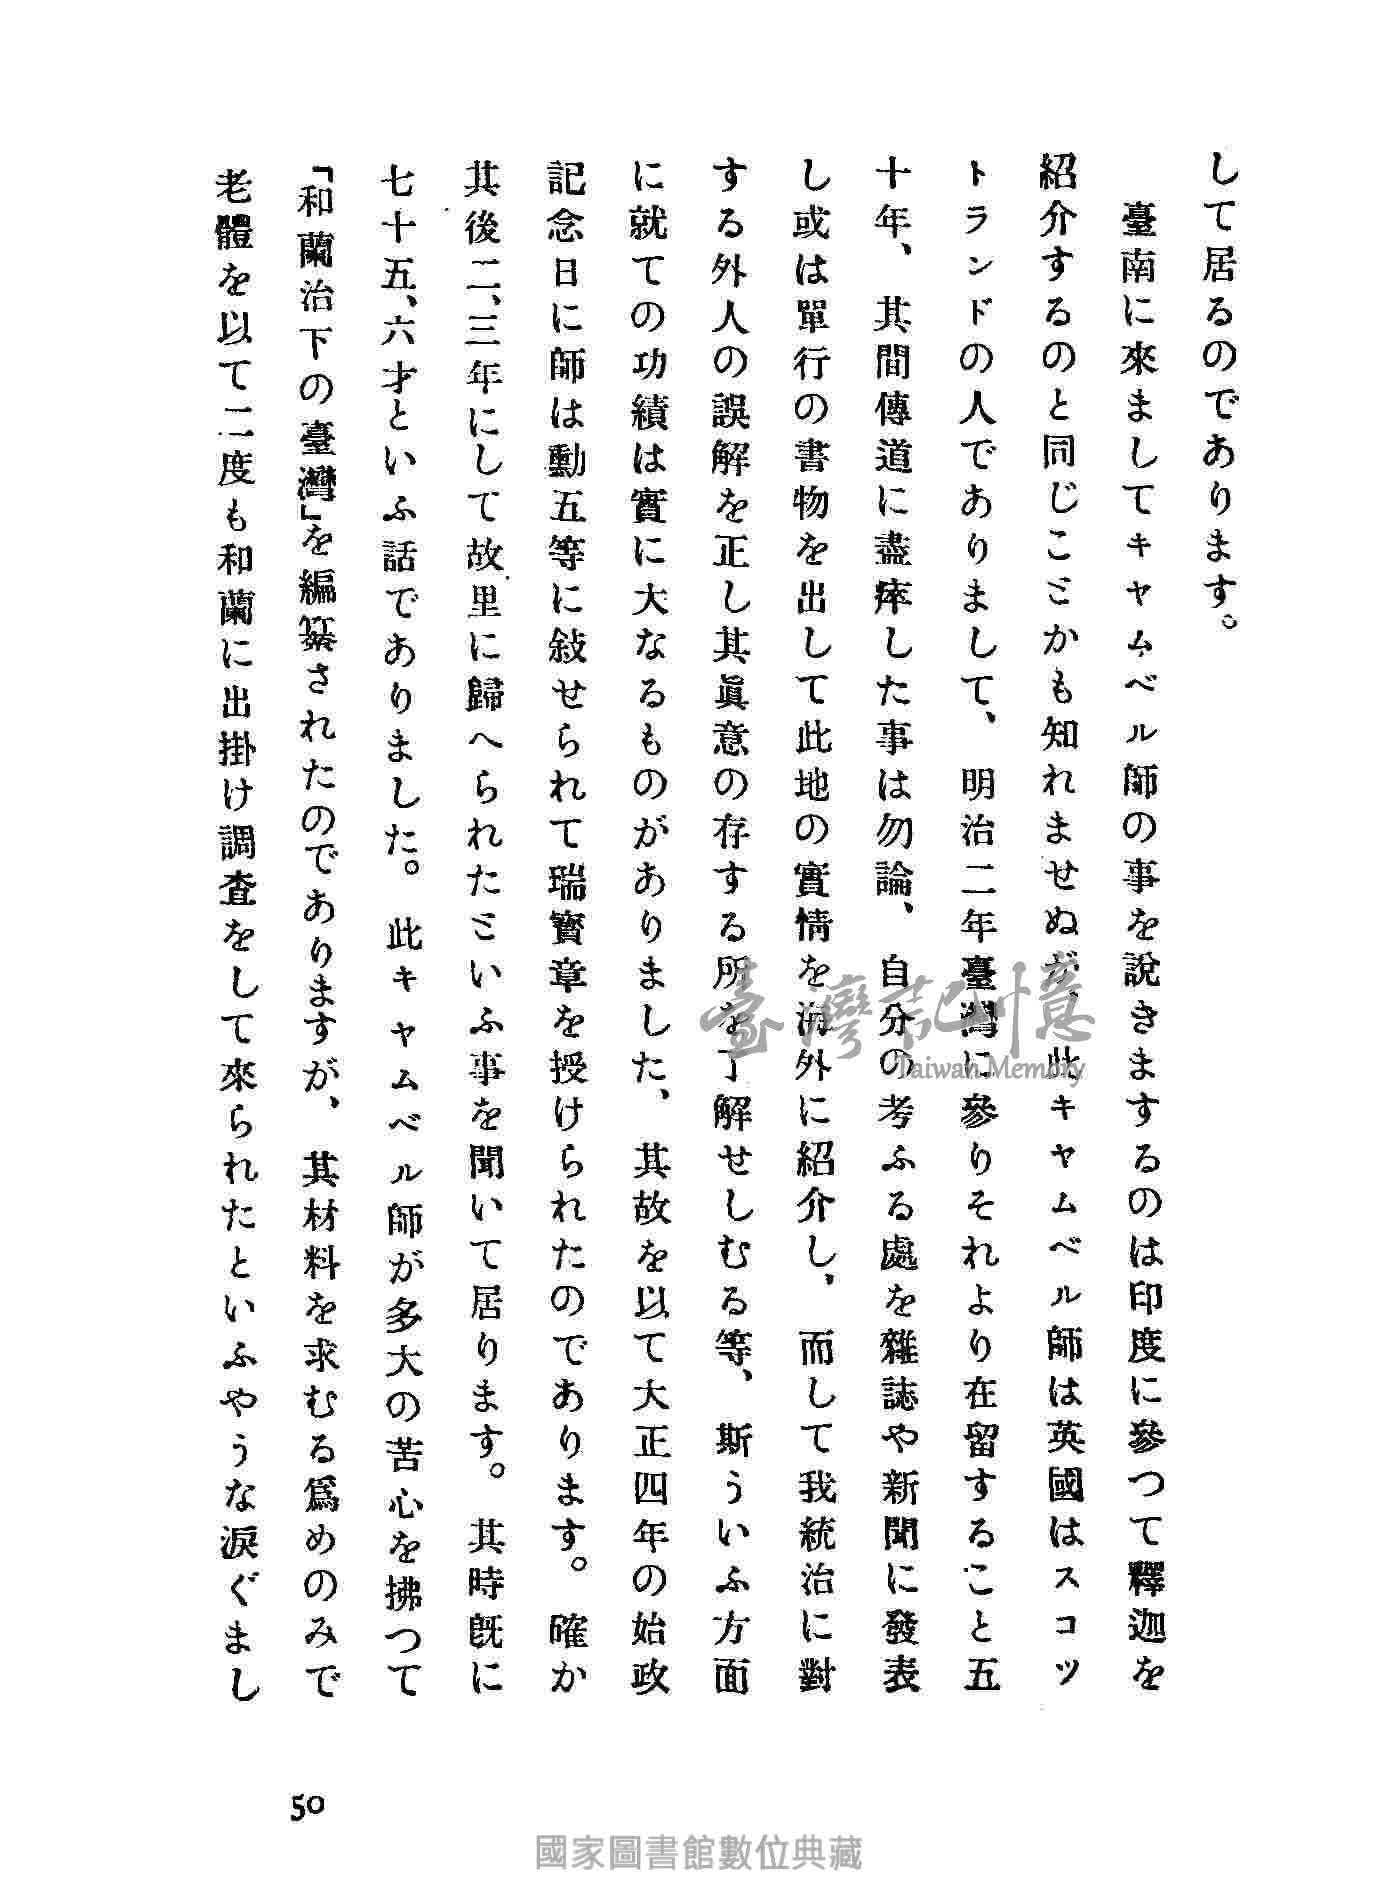 して居るのであります。
臺南に來ましてキヤムベル師の事を說きまするのは印度に參つて釋迦を
紹介するのと同じこミかも知れませぬが、此キヤムベル師は英國はスコツ
トランドの人でありまして、明治二年臺灣に參りそれより在留すること五
十年、其間傳道に盡瘁した事は勿論、自分の考ふる處を雜誌や新聞に發表
し或は單行の書物を出して此地の實情を海外に紹介し、而して我統治に對
する外人の誤解を正し其眞意の存する所を了解せしむる等、斯ういふ方面
に就ての功績は實に大なるものがありました、其故を以て大正四年の始政
記念日に師は勳五等に敍せられて瑞寳章を授けられたのであります。確か
其後二、三年にして故里に歸へられたミいふ事を聞いて居ります。其時旣に
七十五、六才といふ話でありました。此キヤムベル師が多大の苦心を拂つて
「和蘭治下の臺灣」を編纂されたのでありますが、其材料を求むる爲めのみで
老體を以て二度も和蘭に出掛け調査をして來られたといふやうな淚ぐまし
50
臺灣記憶
Taiwan Memory
國家圖書館數位典藏